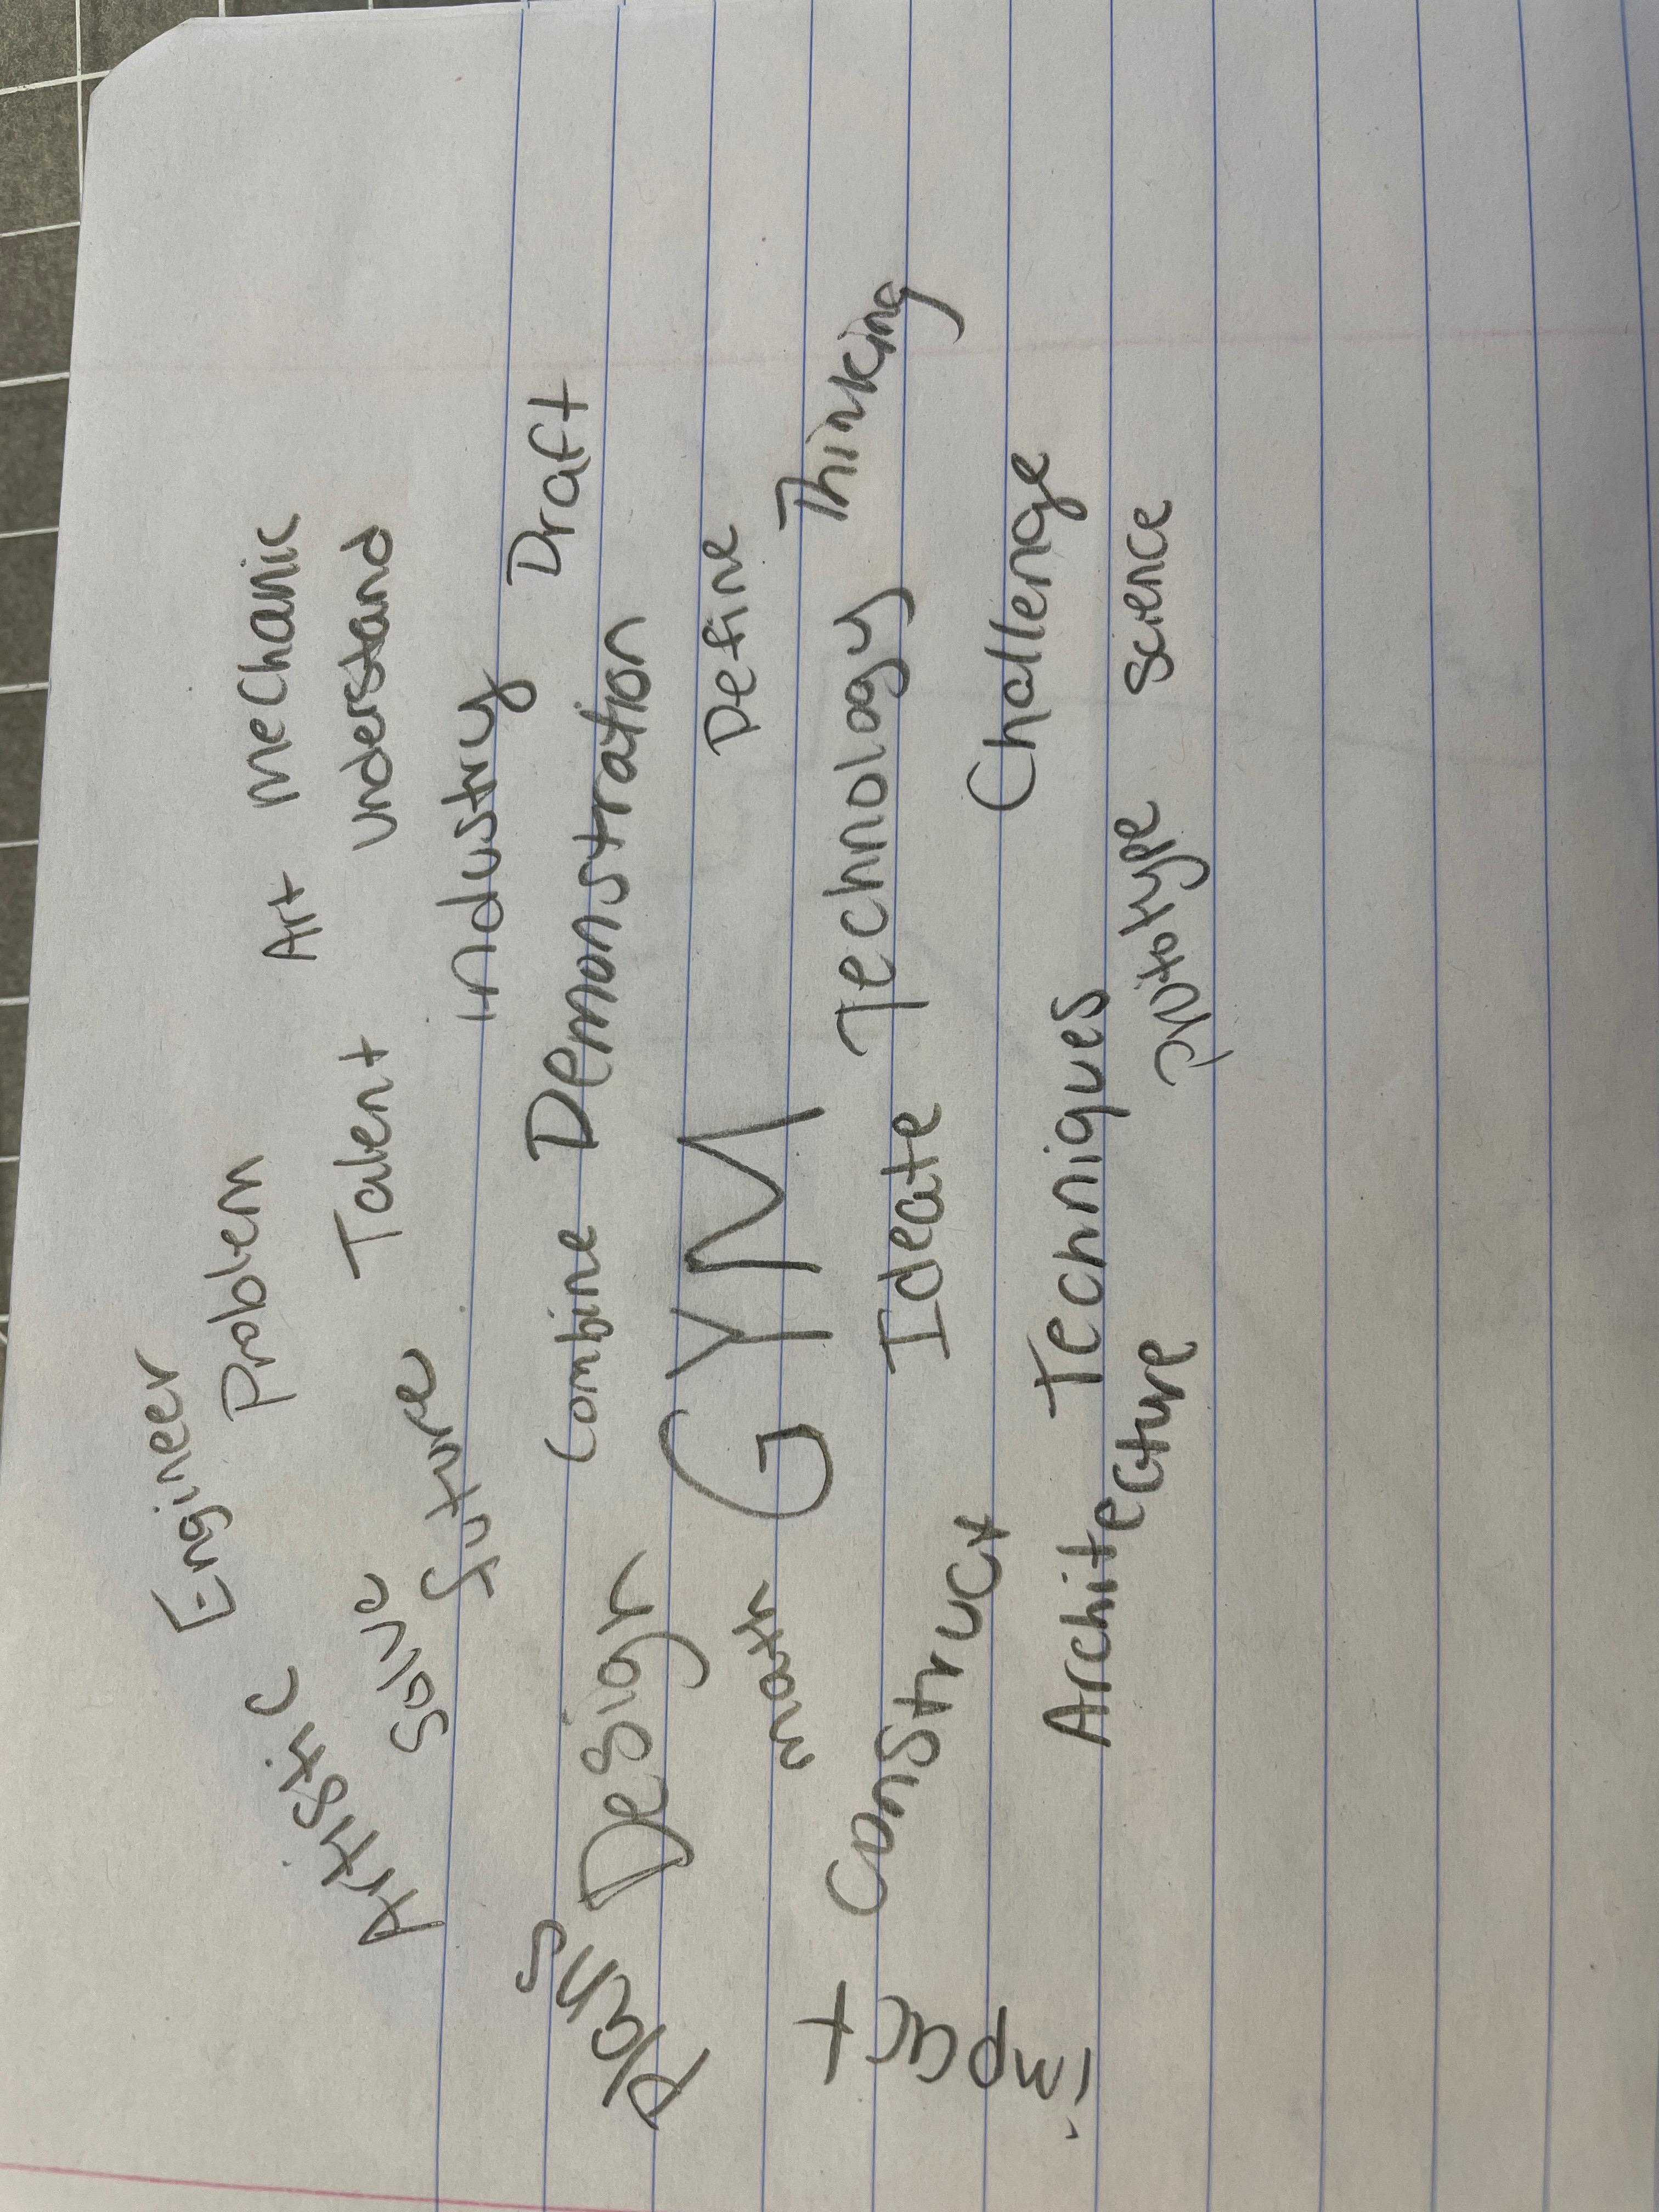 Engineer
Problem Art mechanic
Artistic Talent understand
solve
future industry
Draft
Combine Demonstration
Plans Design
GYM Define
math
Ideate Technology Thinking
Construct
impact
Techniques Challenge
Architecture prototype science